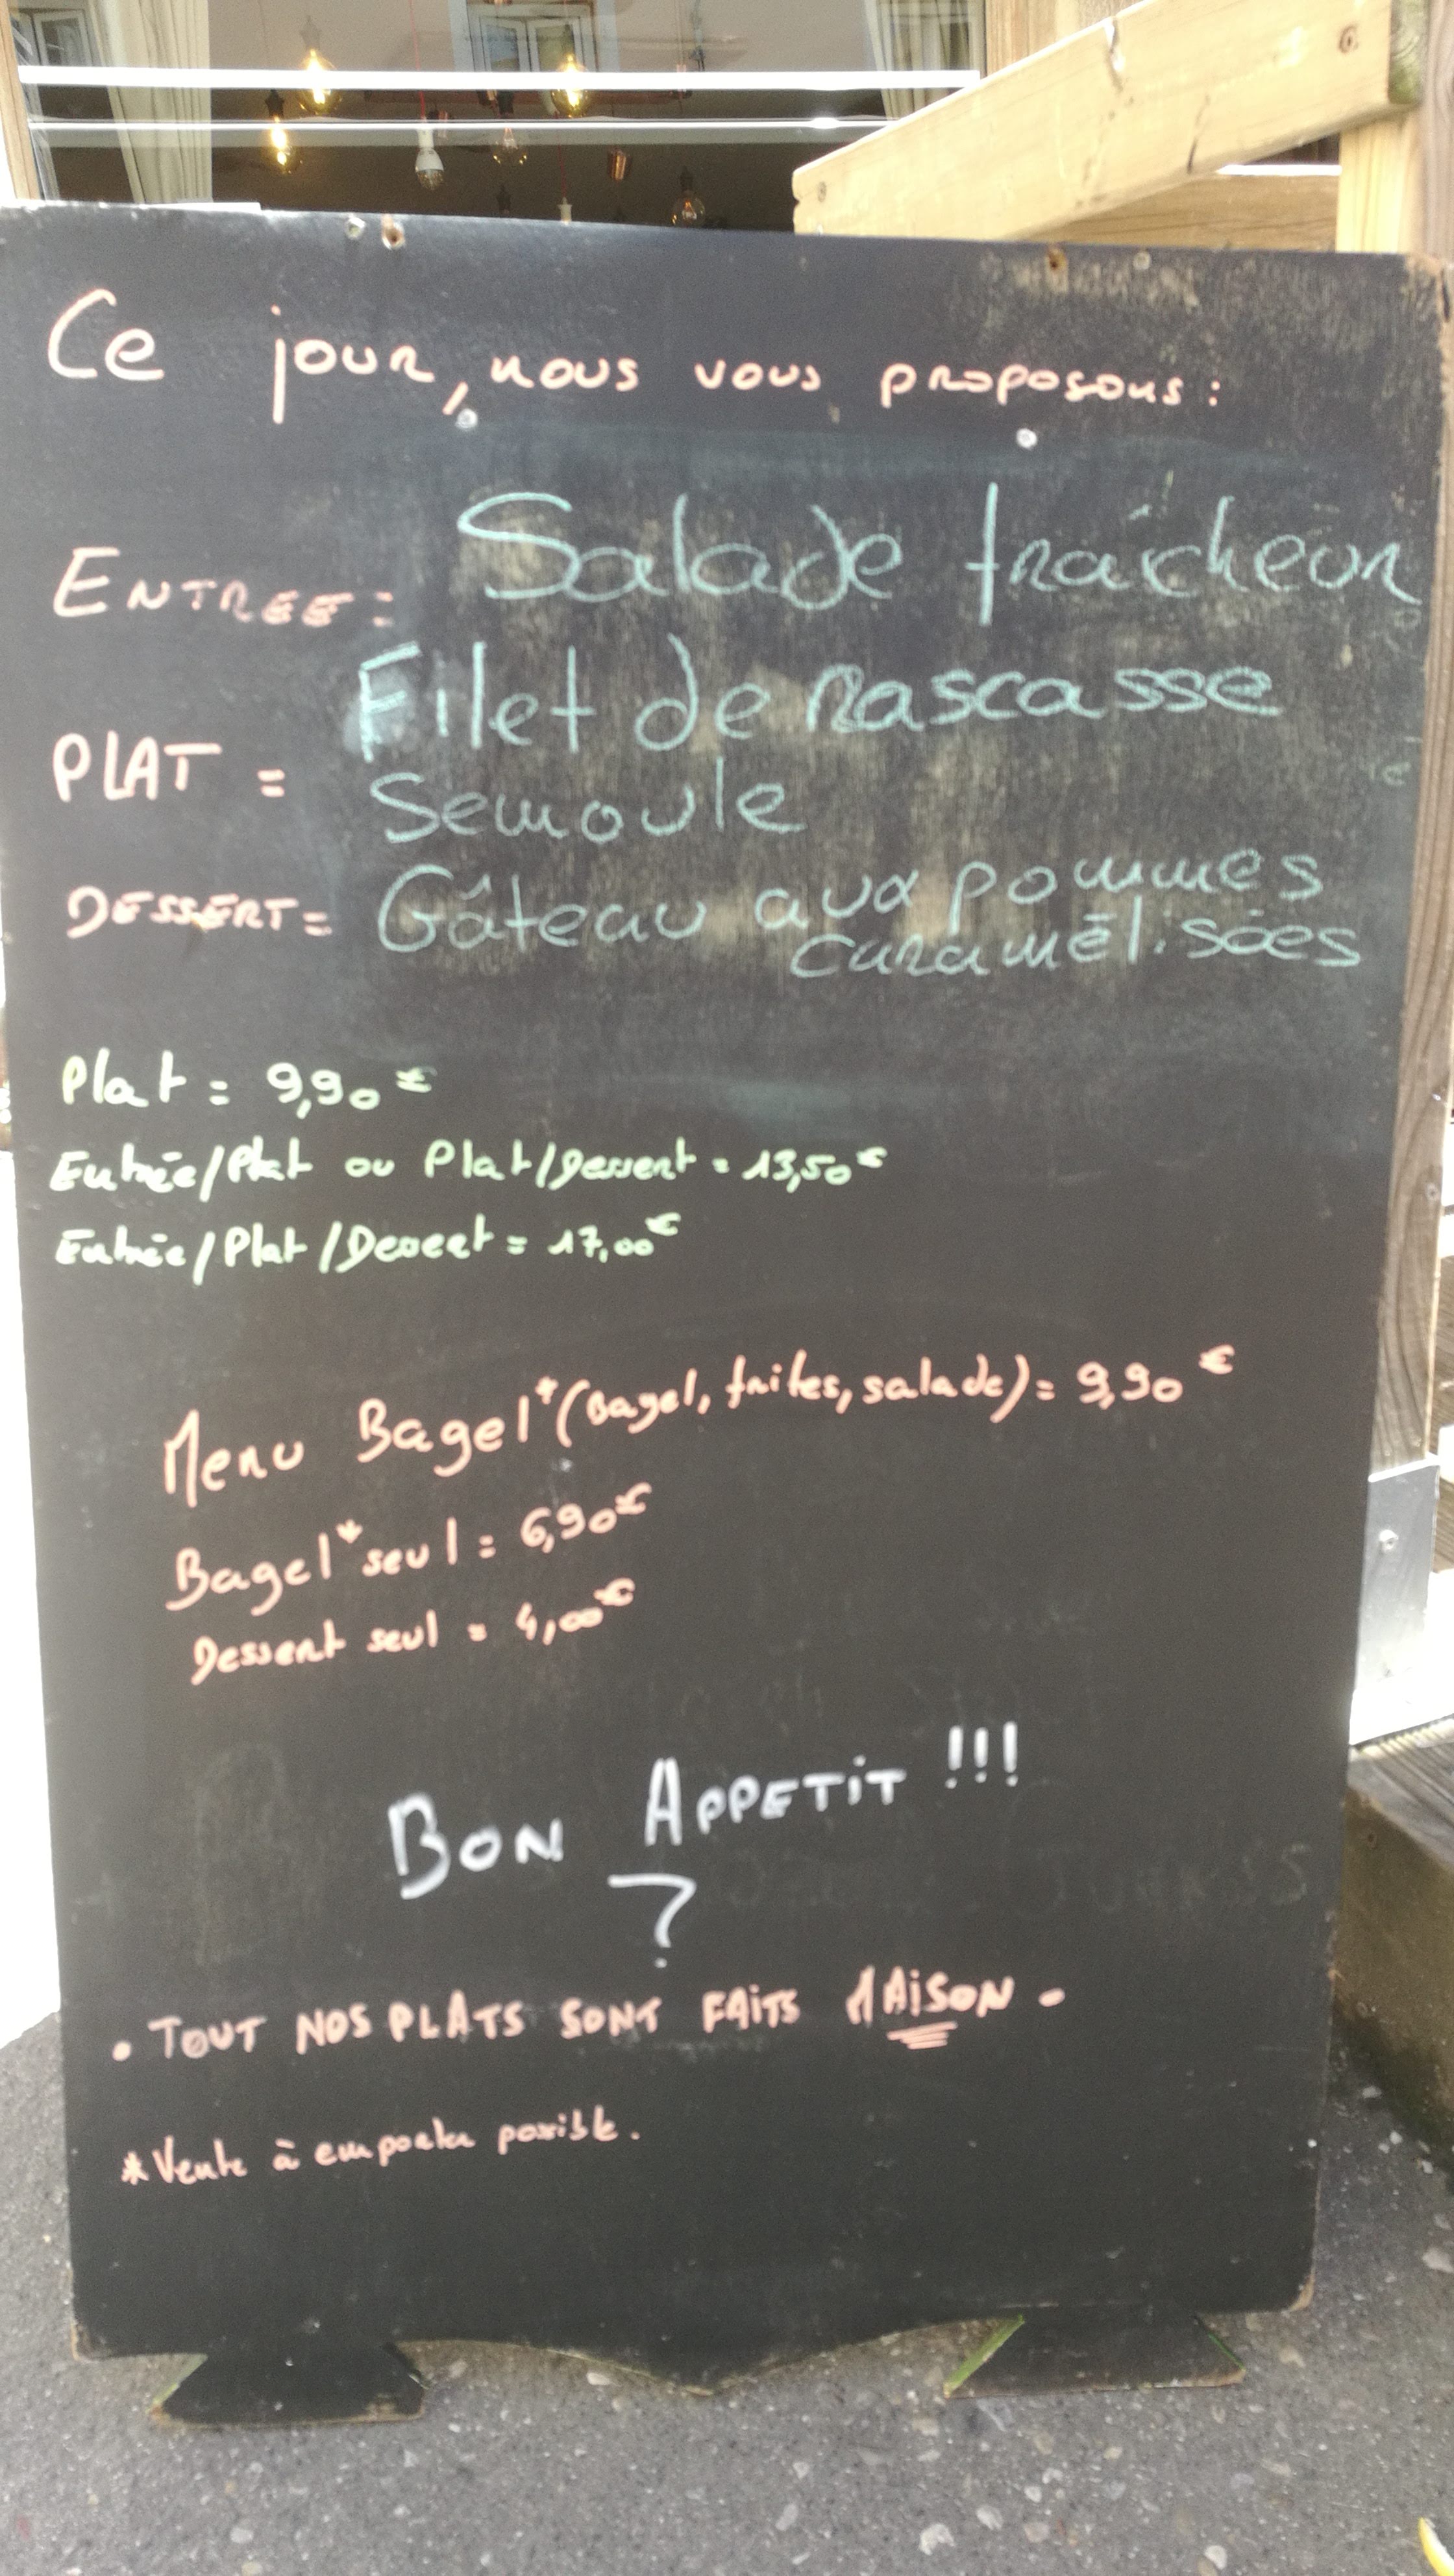 Ce jour, nous vous proposons :
ENTREE : Salade fraîcheur
PLAT = Filet de rascasse
Semoule
DESSERT = Gâteau aux pommes
caramélisées
Plat = 9,90 €
Entrée/Plat ou Plat/Dessert = 13,50 €
Entrée/Plat/Dessert = 17,00 €
Menu Bagel* (Bagel, frites, salade) = 9,90 €
Bagel* seul = 6,90 €
Dessert seul = 4,00 €
BON APPETIT !!!
?
• TOUT NOS PLATS SONT FAITS MAISON •
* Vente à emporter possible.